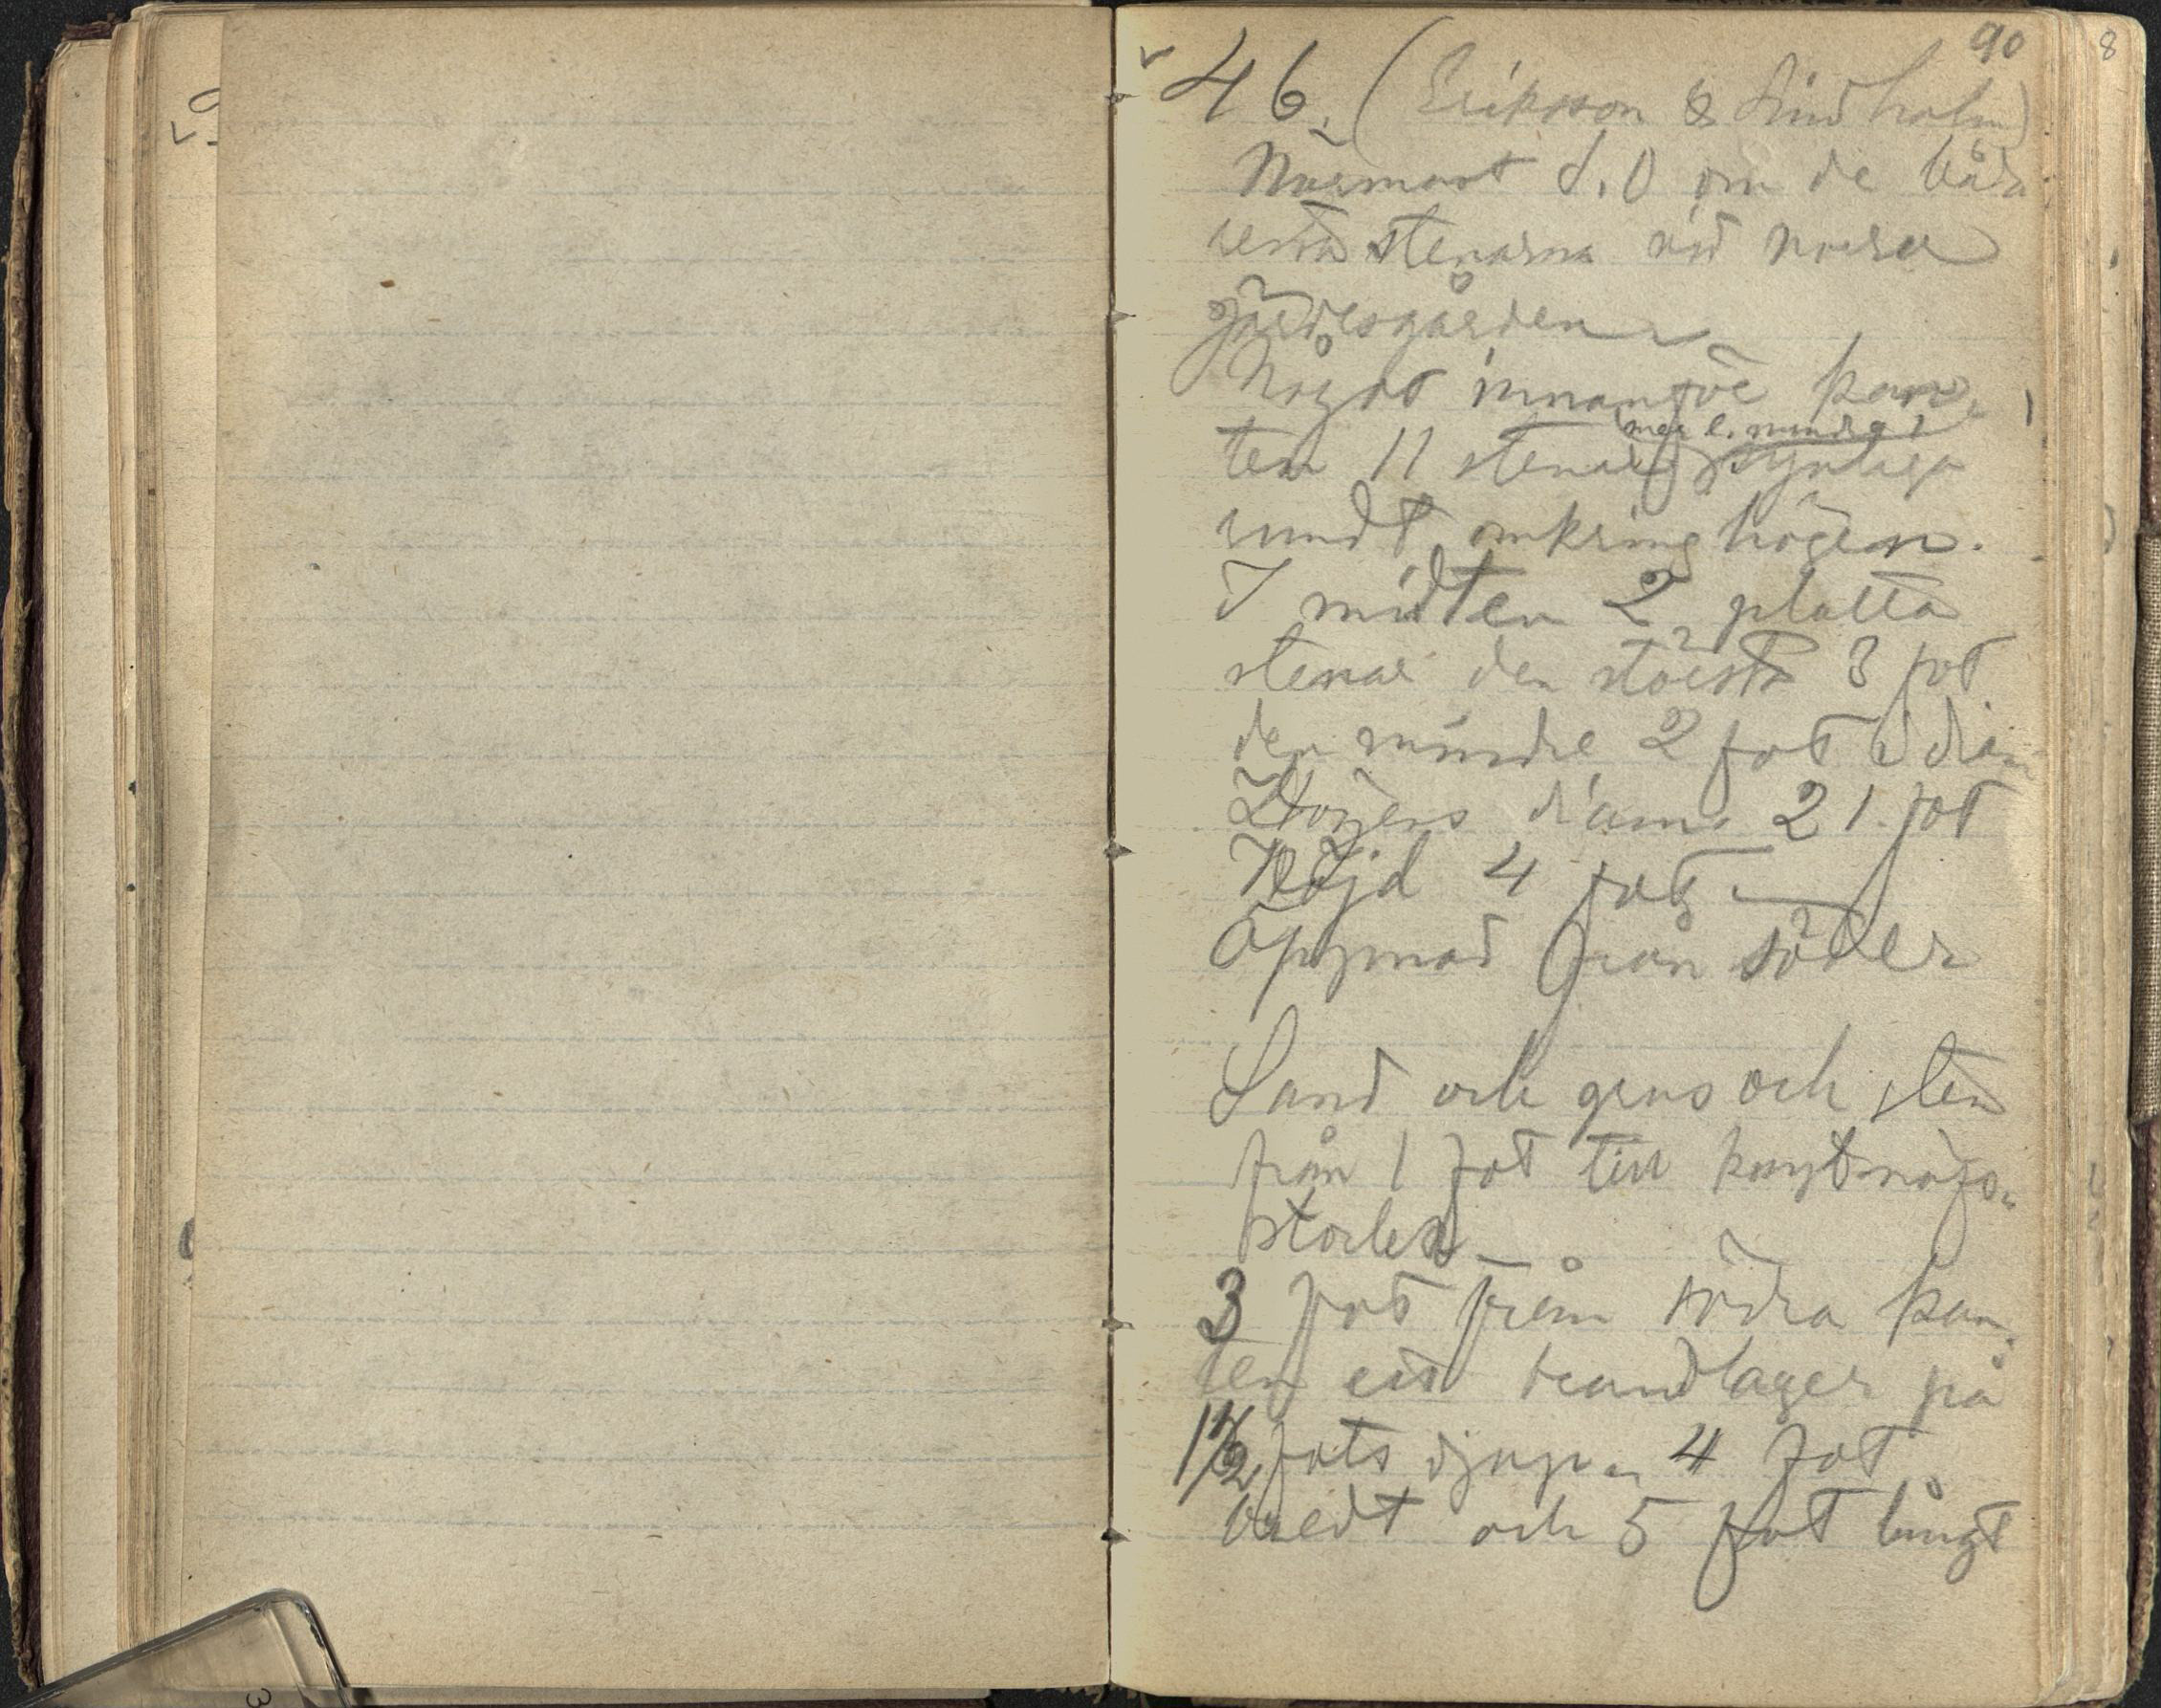 90
8
46. (Eriksson & Lindholm)
Närmast S.O om de båda
resta stenarna vid norra
gärdesgården
Något innanför kan-
(mer l. mindre)
ten 11 stenar synliga
rundt omkring högen.
I midten 2 platta
stenar den största 3 fot
den mindre 2 fot i diam
Högens diam. 21 fot
Höjd 4 fot
Öppnad från söder
Sand och grus och sten
från 1 fot till knytnäfs-
storlek
3 fot från södra kan-
ten ett brandlager på
1 1/2 fots djup 4 fot
bredt och 5 fot långt